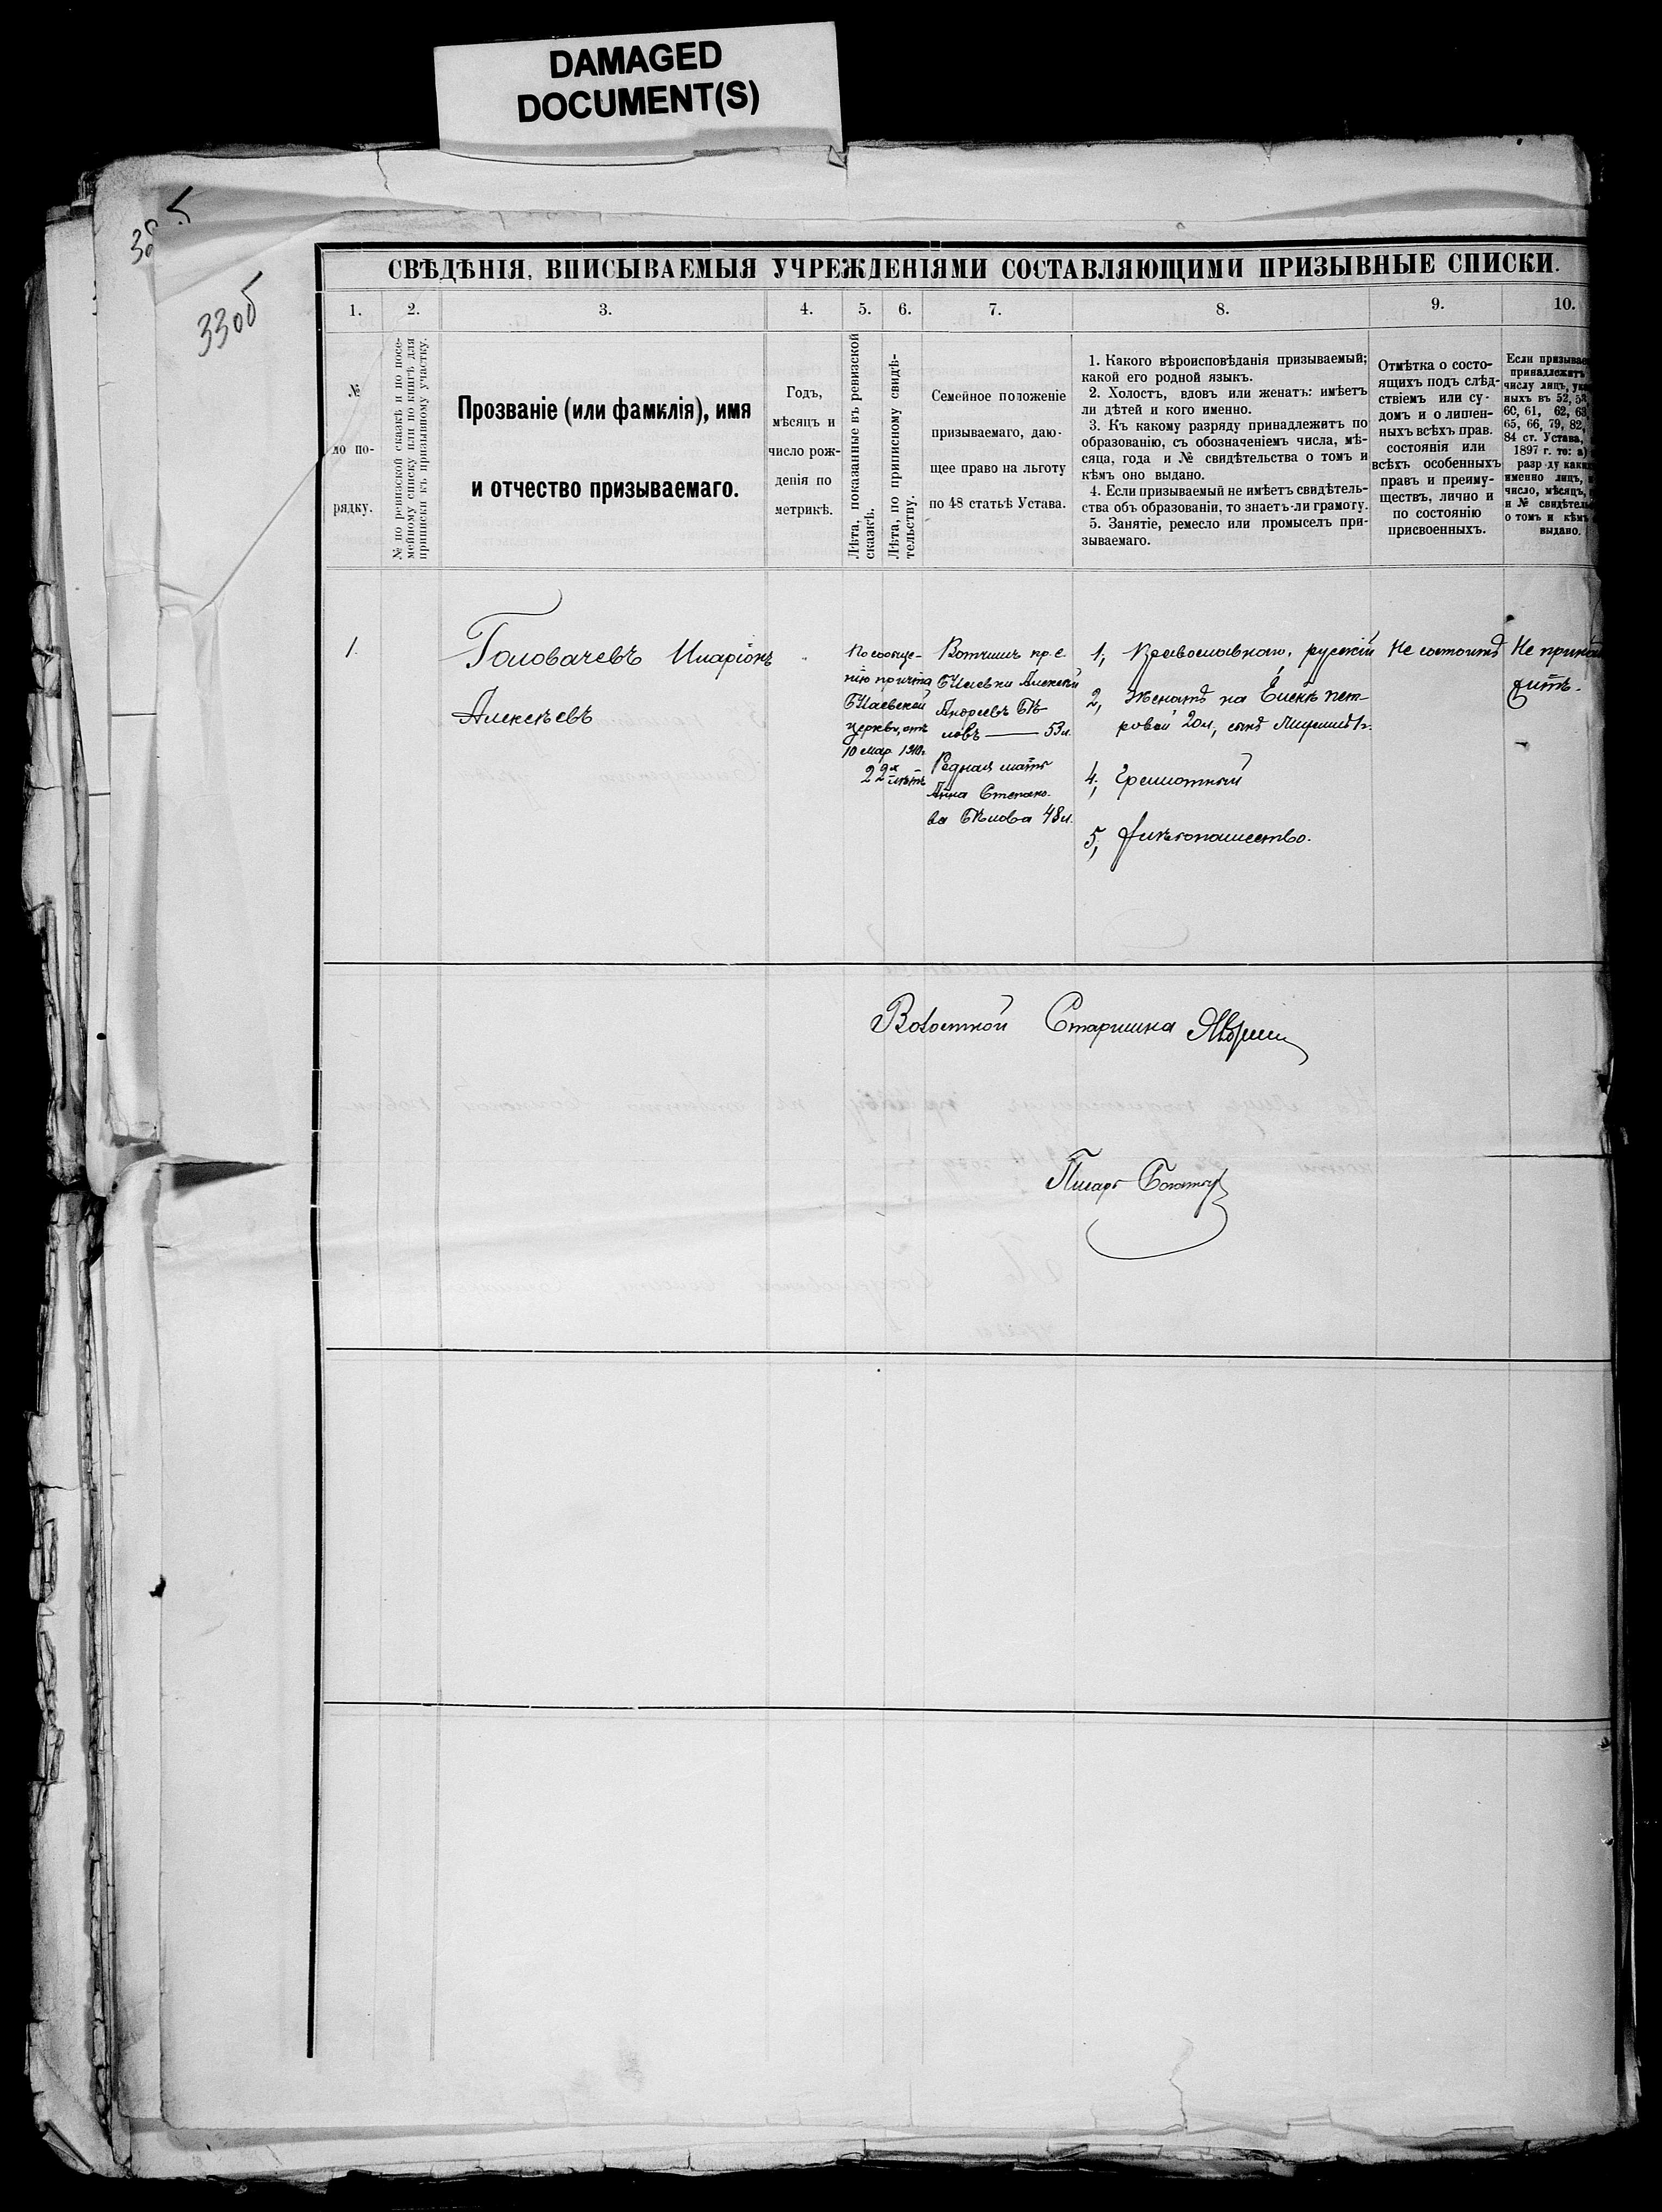 DAMAGED
DOCUMENT(S)
3305
СВѢДѢНІЯ, ВПИСЫВАЕМЫЯ УЧРЕЖДЕНІЯМИ СОСТАВЛЯЮЩИМИ ПРИЗЫВНЫЕ СПИСКИ.
1. 2. 3. 4. 5. 6. 7. 8. 9. 10.
№
по по-
рядку.
№ по ревизской сказкѣ и по посе-
мейному списку или по книгѣ для
приписки къ призывному участку.
Прозваніе (или фамилія), имя
и отчество призываемаго.
Годъ,
мѣсяцъ и
число рож-
денія по
метрикѣ.
Лѣта, показанные въ ревизской
сказкѣ.
Лѣта, по приписному свидѣ-
тельству.
Семейное положеніе
призываемаго, даю-
щее право на льготу
по 48 статьѣ Устава.
1. Какого вѣроисповѣданія призываемый;
какой его родной языкъ.
2. Холостъ, вдовъ или женатъ: имѣетъ
ли дѣтей и кого именно.
3. Къ какому разряду принадлежитъ по
образованію, съ обозначеніемъ числа, мѣ-
сяца, года и № свидѣтельства о томъ и
кѣмъ оно выдано.
4. Если призываемый не имѣетъ свидѣтель-
ства объ образованіи, то знаетъ-ли грамоту.
5. Занятіе, ремесло или промыселъ при-
зываемаго.
Отмѣтка о состо-
ящихъ подъ слѣд-
ствіемъ или су-
домъ и о лишен-
ныхъ всѣхъ прав.
состоянія или
всѣхъ особенныхъ
правъ и преиму-
ществъ, лично и
по состоянію
присвоенныхъ.
Если призывае
принадлежитъ
числу лицъ, ука
ныхъ въ 52, 53
60, 61, 62, 63,
65, 66, 79, 82,
84 ст. Устава,
1897 г. то: а)
разр ду каки
именно лицъ,
число, мѣсяцъ,
и № свидѣтель
о томъ и кѣмъ
выдано.
1.
Головачевъ Иларіонъ
Алексѣевъ
По сообще-
нію причта
церкви, отъ
10 Мар. 1910г.
22х лѣтъ
Вотчимъ кр. с.
Алексѣй
Андреевъ Бѣ-
ловъ — 53л.
Родная мать
Анна Степано-
ва Бѣлова 48л.
1, Православнаго, русскій
2, Женатъ на Еленѣ Пет-
ровой 20л, сынъ 1г.
4, Грамотный
5, Хлѣбопашество.
Не состоитъ
Не принад
житъ.
Волостной Старшина
Писарь